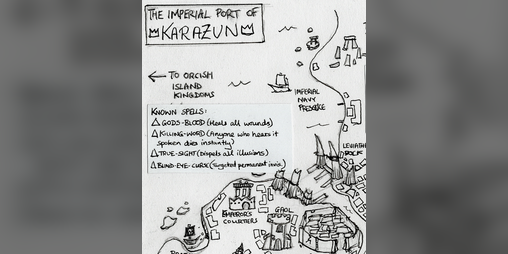 THE IMPERIAL PORT OF
KARAZUN
← TO ORCISH
ISLAND
KINGDOMS
IMPERIAL
NAVY
PRESENCE
KNOWN SPELLS:
△ GODS-BLOOD (Heals all wounds)
△ KILLING-WORD (Anyone who hears it
spoken dies instantly)
△ TRUE-SIGHT (Dispels all illusions)
△ BLIND-EYE-CURSE (Targeted permanent
LEVIATH
ROCK
EMPEROR'S
GAOL